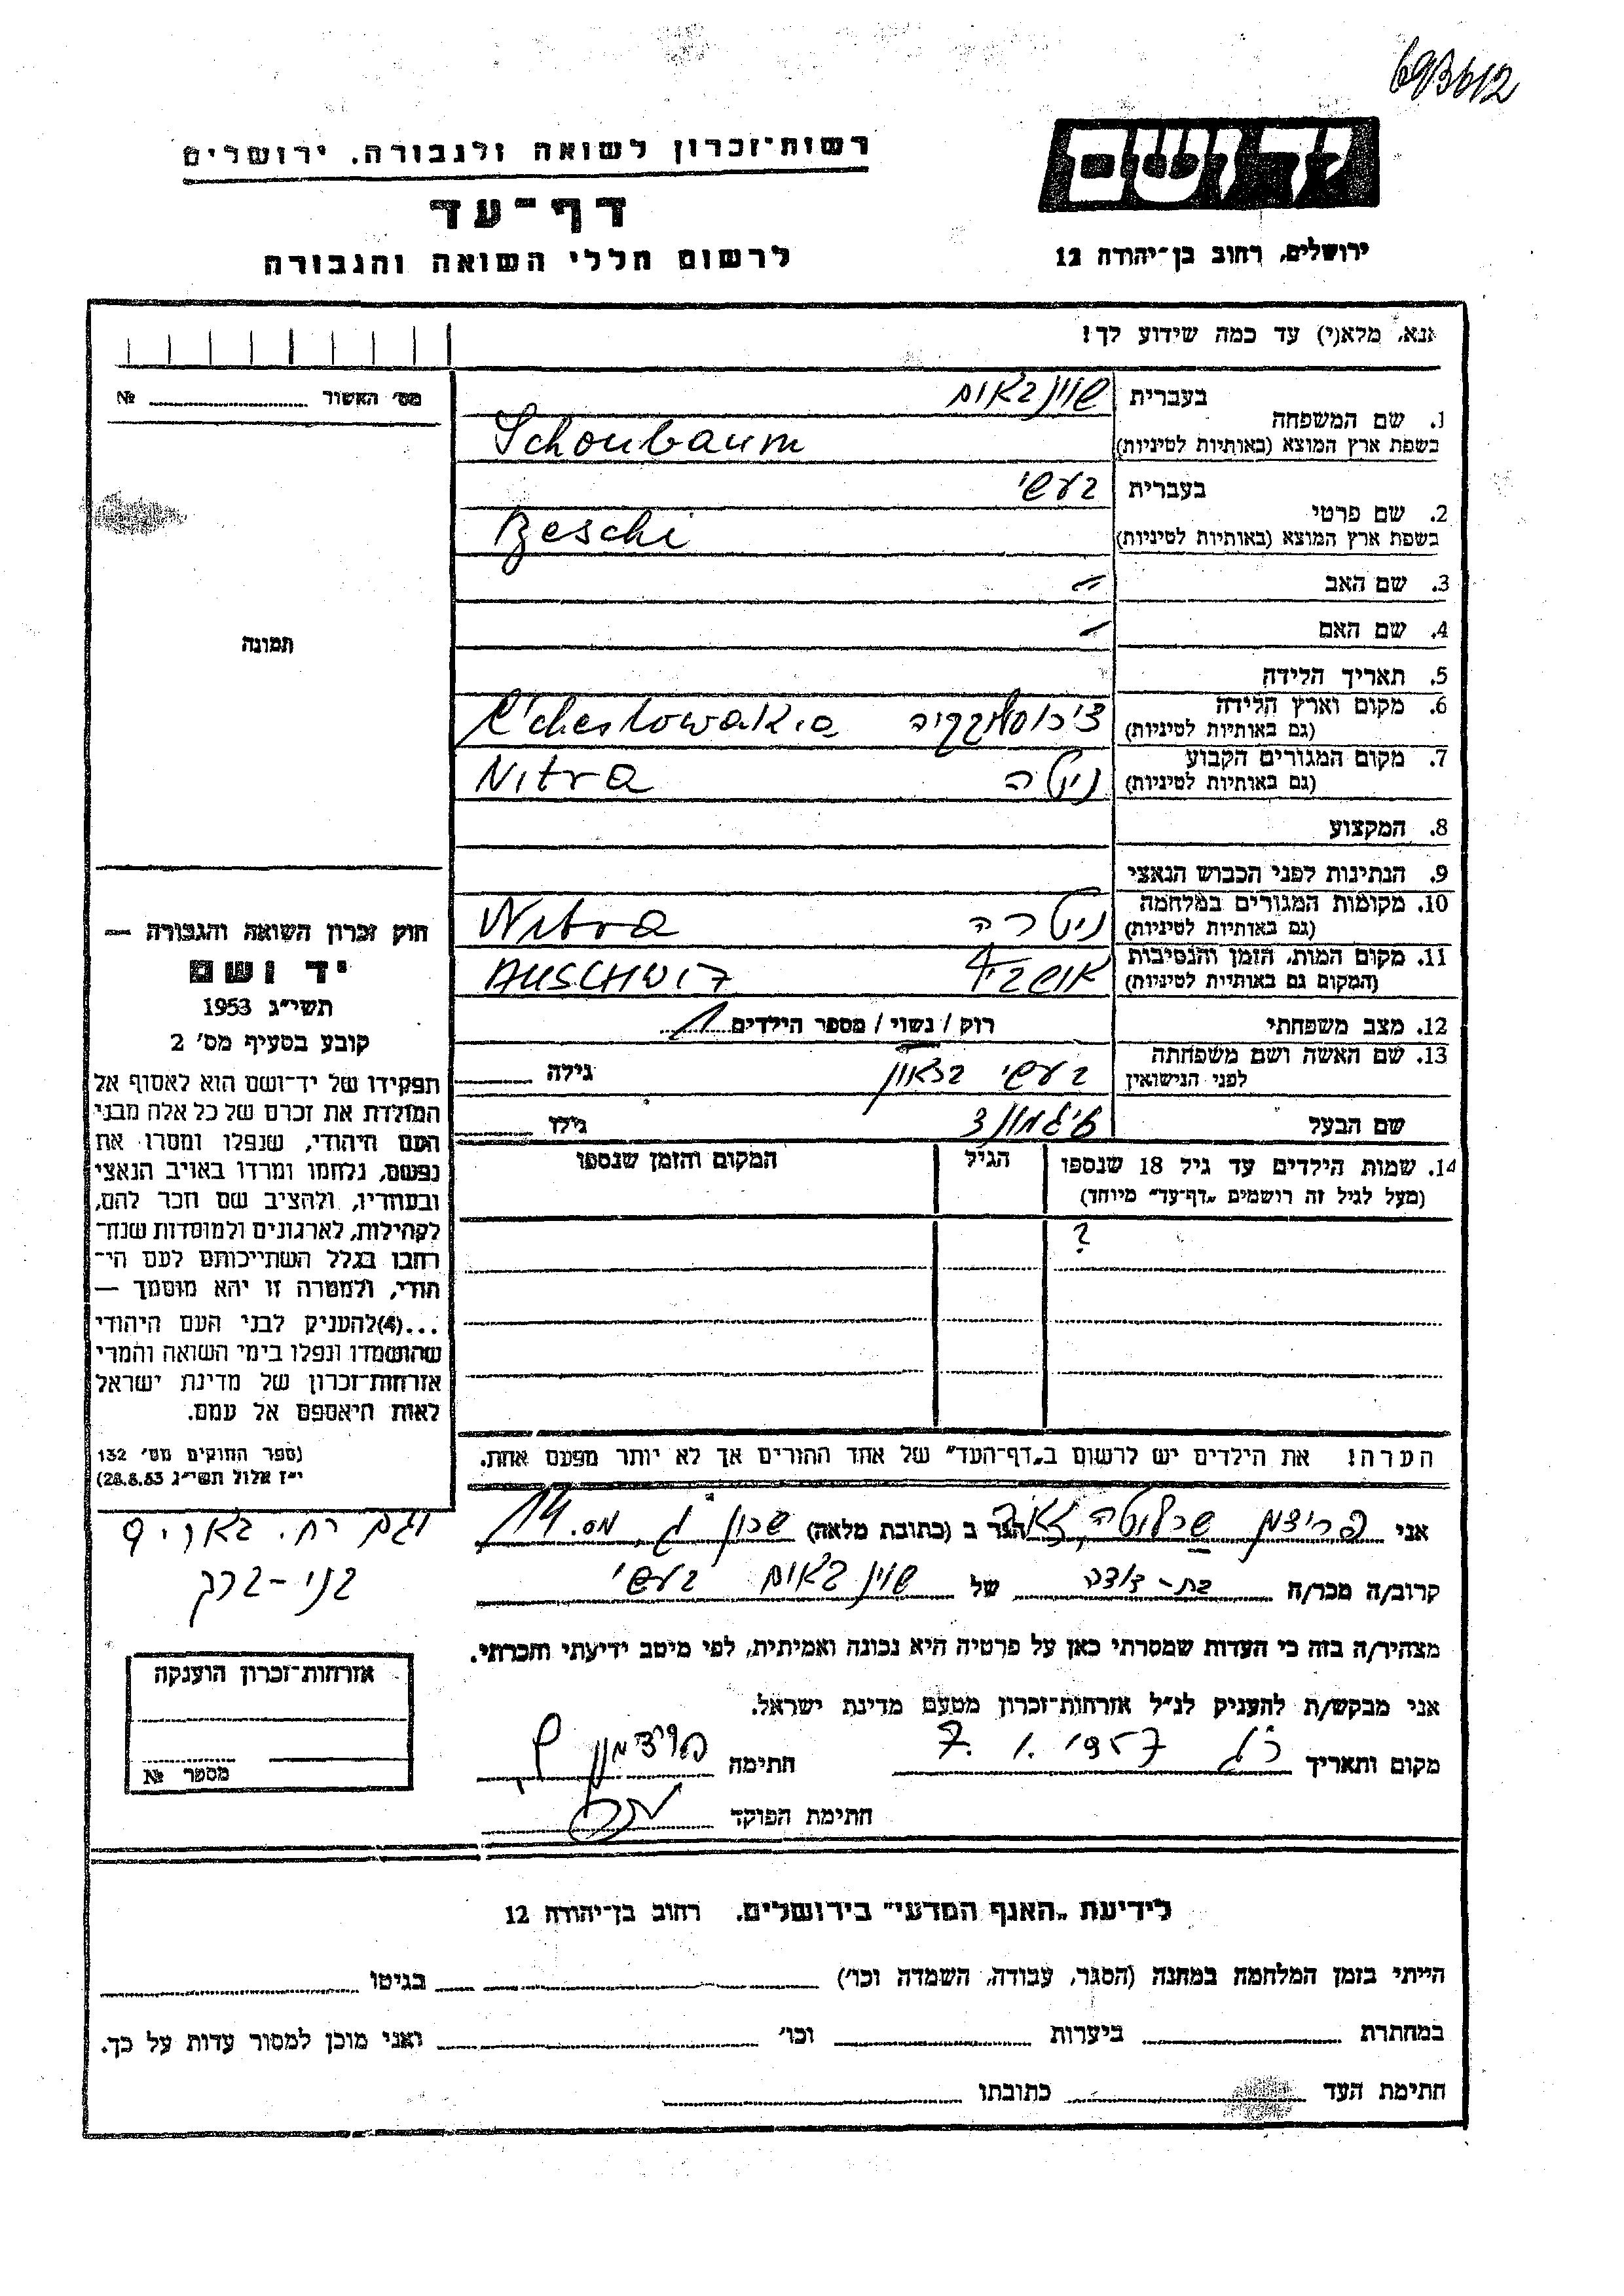 693612
יד ושם
רשות־זכרון לשואה ולגבורה, ירושלים
דף־עד
לרשום חללי השואה והגבורה
ירושלים, רחוב בן־יהודה 12
נא, מלא(י) עד כמה שידוע לך!
מס׳ האשור ___ №
תמונה
1. שם המשפחה
בעברית שויןבאום
בשפת ארץ המוצא (באותיות לטיניות) Schonbaum
2. שם פרטי
בעברית בעשי
בשפת ארץ המוצא (באותיות לטיניות) Beschi
3. שם האב –
4. שם האם –
5. תאריך הלידה
6. מקום וארץ הלידה
(גם באותיות לטיניות) צ׳כוסלובקיה C'cheslowakia
7. מקום המגורים הקבוע
(גם באותיות לטיניות) ניטרה Nitra
8. המקצוע
9. הנתינות לפני הכבוש הנאצי
10. מקומות המגורים במלחמה
(גם באותיות לטיניות) ניטרה Nitra
11. מקום המות, הזמן והנסיבות
(המקום גם באותיות לטיניות) אושביץ AUSCHWITZ
12. מצב משפחתי רוק / נשוי / מספר הילדים 1
13. שם האשה ושם משפחתה
לפני הנישואין בעשי גילה
שם הבעל זיגמונד גילו
14. שמות הילדים עד גיל 18 שנספו הגיל המקום והזמן שנספו
(מעל לגיל זה רושמים „דף־עד” מיוחד)
?
הערה! את הילדים יש לרשום ב„דף־העד” של אחד ההורים אך לא יותר מפעם אחת.
חוק זכרון השואה והגבורה —
יד ושם
תשי״ג 1953
קובע בסעיף מס׳ 2
תפקידו של יד־ושם הוא לאסוף אל
המולדת את זכרם של כל אלה מבני
העם היהודי, שנפלו ומסרו את
נפשם, נלחמו ומרדו באויב הנאצי
ובעוזריו, ולהציב שם וזכר להם,
לקהילות, לארגונים ולמוסדות שנח־
רחבו בגלל השתייכותם לעם הי־
הודי, ולמטרה זו יהא מוסמך —
...(4) להעניק לבני העם היהודי
שהושמדו ונפלו בימי השואה והמרי
אזרחות־זכרון של מדינת ישראל
לאות היאספם אל עמם.
(ספר החוקים מס׳ 132
י״ז אלול תשי״ג 28.8.53)
אני פרידמן שרלוטה הגר ב (כתובת מלאה) שכון ג, מס. 14
בני-ברק
קרוב/ה מכר/ה בת-דודה של שוין באום בעשי
מצהיר/ה בזה כי העדות שמסרתי כאן על פרטיה היא נכונה ואמיתית, לפי מיטב ידיעתי והכרתי.
אני מבקש/ת להעניק לנ״ל אזרחות־זכרון מטעם מדינת ישראל.
מקום ותאריך 7.1.1957 חתימה פרידמן ש
חתימת הפוקד
אזרחות־זכרון הוענקה
מספר №
לידיעת „האנף המדעי” בירושלים, רחוב בן־יהודה 12
הייתי בזמן המלחמה במחנה (הסגר, עבודה, השמדה וכו׳) בגיטו
במחתרת ביערות וכו׳ ואני מוכן למסור עדות על כך.
חתימת העד כתובתו